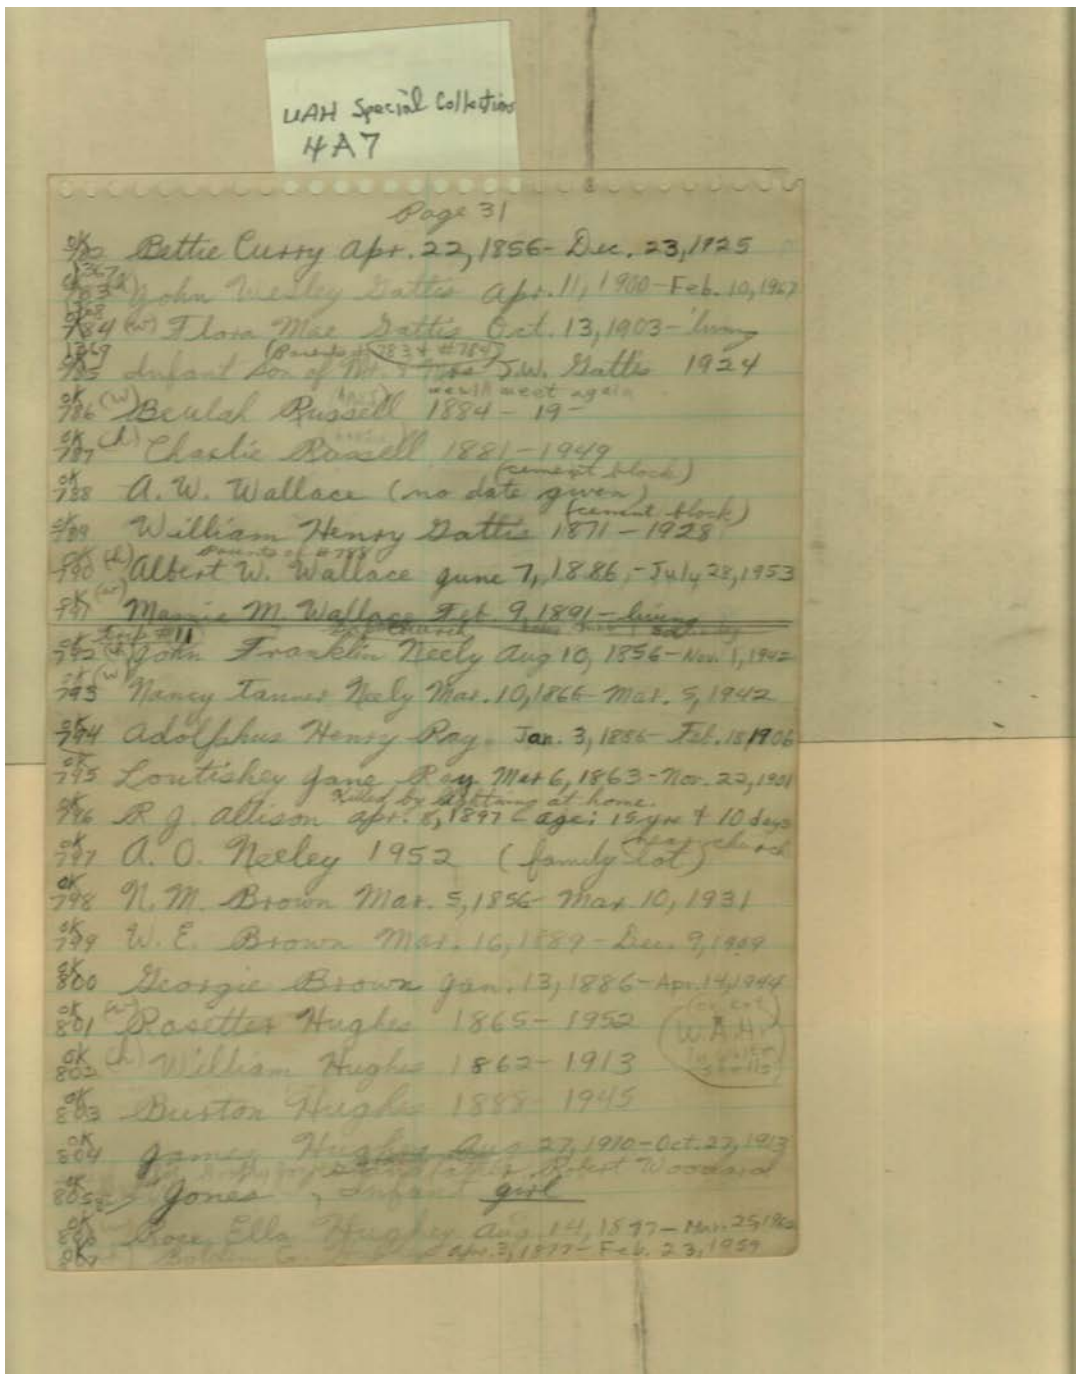 UAH Special Collections
4A7
Page 31
OK 782 Bettie Curry Apr. 22, 1856 - Dec. 23, 1925
1367
783 (h) John Wesley Gattis Apr. 11, 1900 - Feb. 10, 1967
784 (w) Flora Mae Gattis Oct. 13, 1903 - living
1369 (Parents #783 & #784)
785 Infant Son of Mr. & Mrs J.W. Gattis 1924
we will meet again
OK 786 (w) Beulah Russell 1884 - 19 -
OK 787 (h) Charlie Russell 1881 - 1949
(cement block)
OK 788 A. W. Wallace (no date given)
(cement block)
OK 789 William Henry Gattis 1871 - 1928
parents of #788
OK 790 (h) Albert W. Wallace June 7, 1886, - July 28, 1953
OK 791 (w) Mamie M. Wallace Feb 9, 1891 - living
Trip #11 Church
OK 792 (h) John Franklin Neely Aug 10, 1856 - Nov. 1, 1942
OK 793 (w) Nancy Tanner Neely Mar. 10, 1866 - Mar. 5, 1942
OK 794 Adolphus Henry Ray. Jan. 3, 1886 - Feb. 18 1906
OK 795 Loutishey Jane Ray Mar 6, 1863 - Nov. 22, 1901
Killed by lightning at home.
OK 796 R J. Allison Apr. 8, 1897 - age: 15 yrs & 10 days
near church
OK 797 A. O. Neeley 1952 (family lot)
OK 798 N. M. Brown Mar. 5, 1856 - Mar. 10, 1931
OK 799 W. E. Brown Mar. 16, 1889 - Dec. 9, 1909
OK 800 Georgie Brown Jan. 13, 1886 - Apr. 14, 1944
OK 801 (w) Rosetter Hughes 1865 - 1952
W.A.H.
OK 802 (h) William Hughes 1862 - 1913
OK 803 Burton Hughes 1888 - 1945
OK 804 James Hughes Aug 27, 1910 - Oct. 27, 1913
Robert Woodard
OK 805 Jones, Infant girl
OK 806 Rose Ella Hughey Aug. 14, 1877 - Mar. 25, 196
OK 807 Apr. 3, 1877 - Feb. 23, 1959